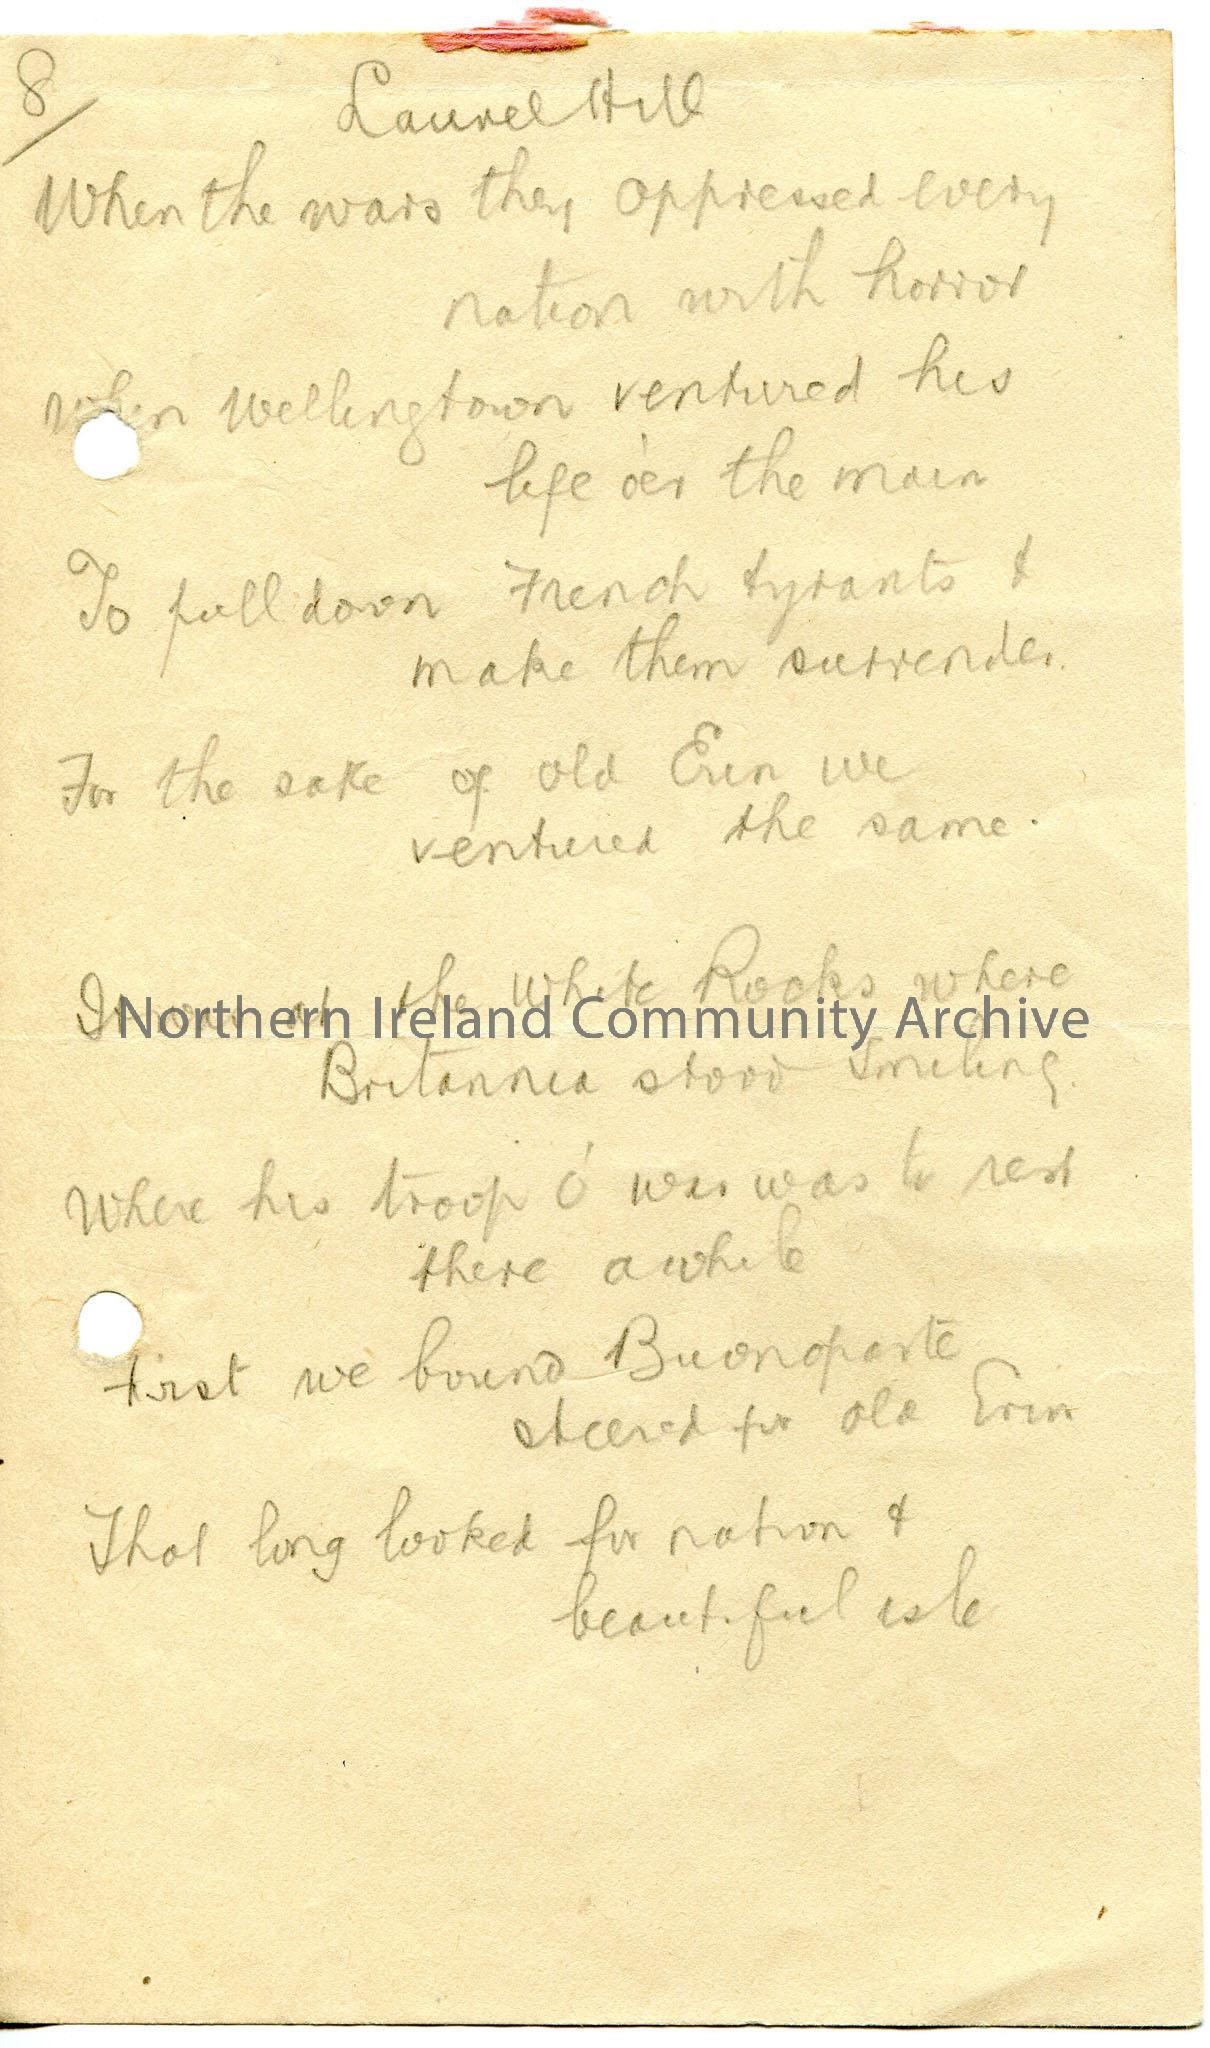 8/
Laurel Hill
When the wars they oppressed every
nation with horror
When Wellingtown ventured his
life o'er the main
To pull down French tyrants &
make them surrender.
For the sake of old Erin we
ventured the same.
It was at the White Rocks where
Northern Ireland Community Archive
Britannia stood smiling.
Where his troop o' war was to rest
there awhile
First we bound Buonoparte
steered for old Erin
That long looked for nation &
beautiful isle